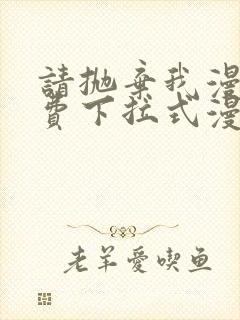 請抛棄我漫
費下拉式漫
老羊愛喫鱼